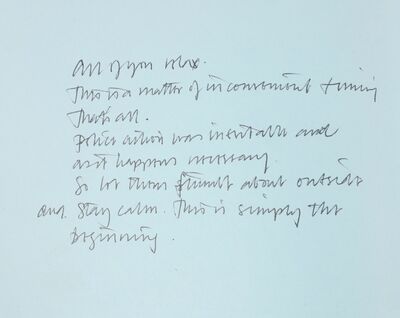 all of you relax.
This is a matter of inconvenient timing
That's all.
police action was inevitable and
as it happens necessary.
So let them fumble about outside
and stay calm. This is simply the
beginning.